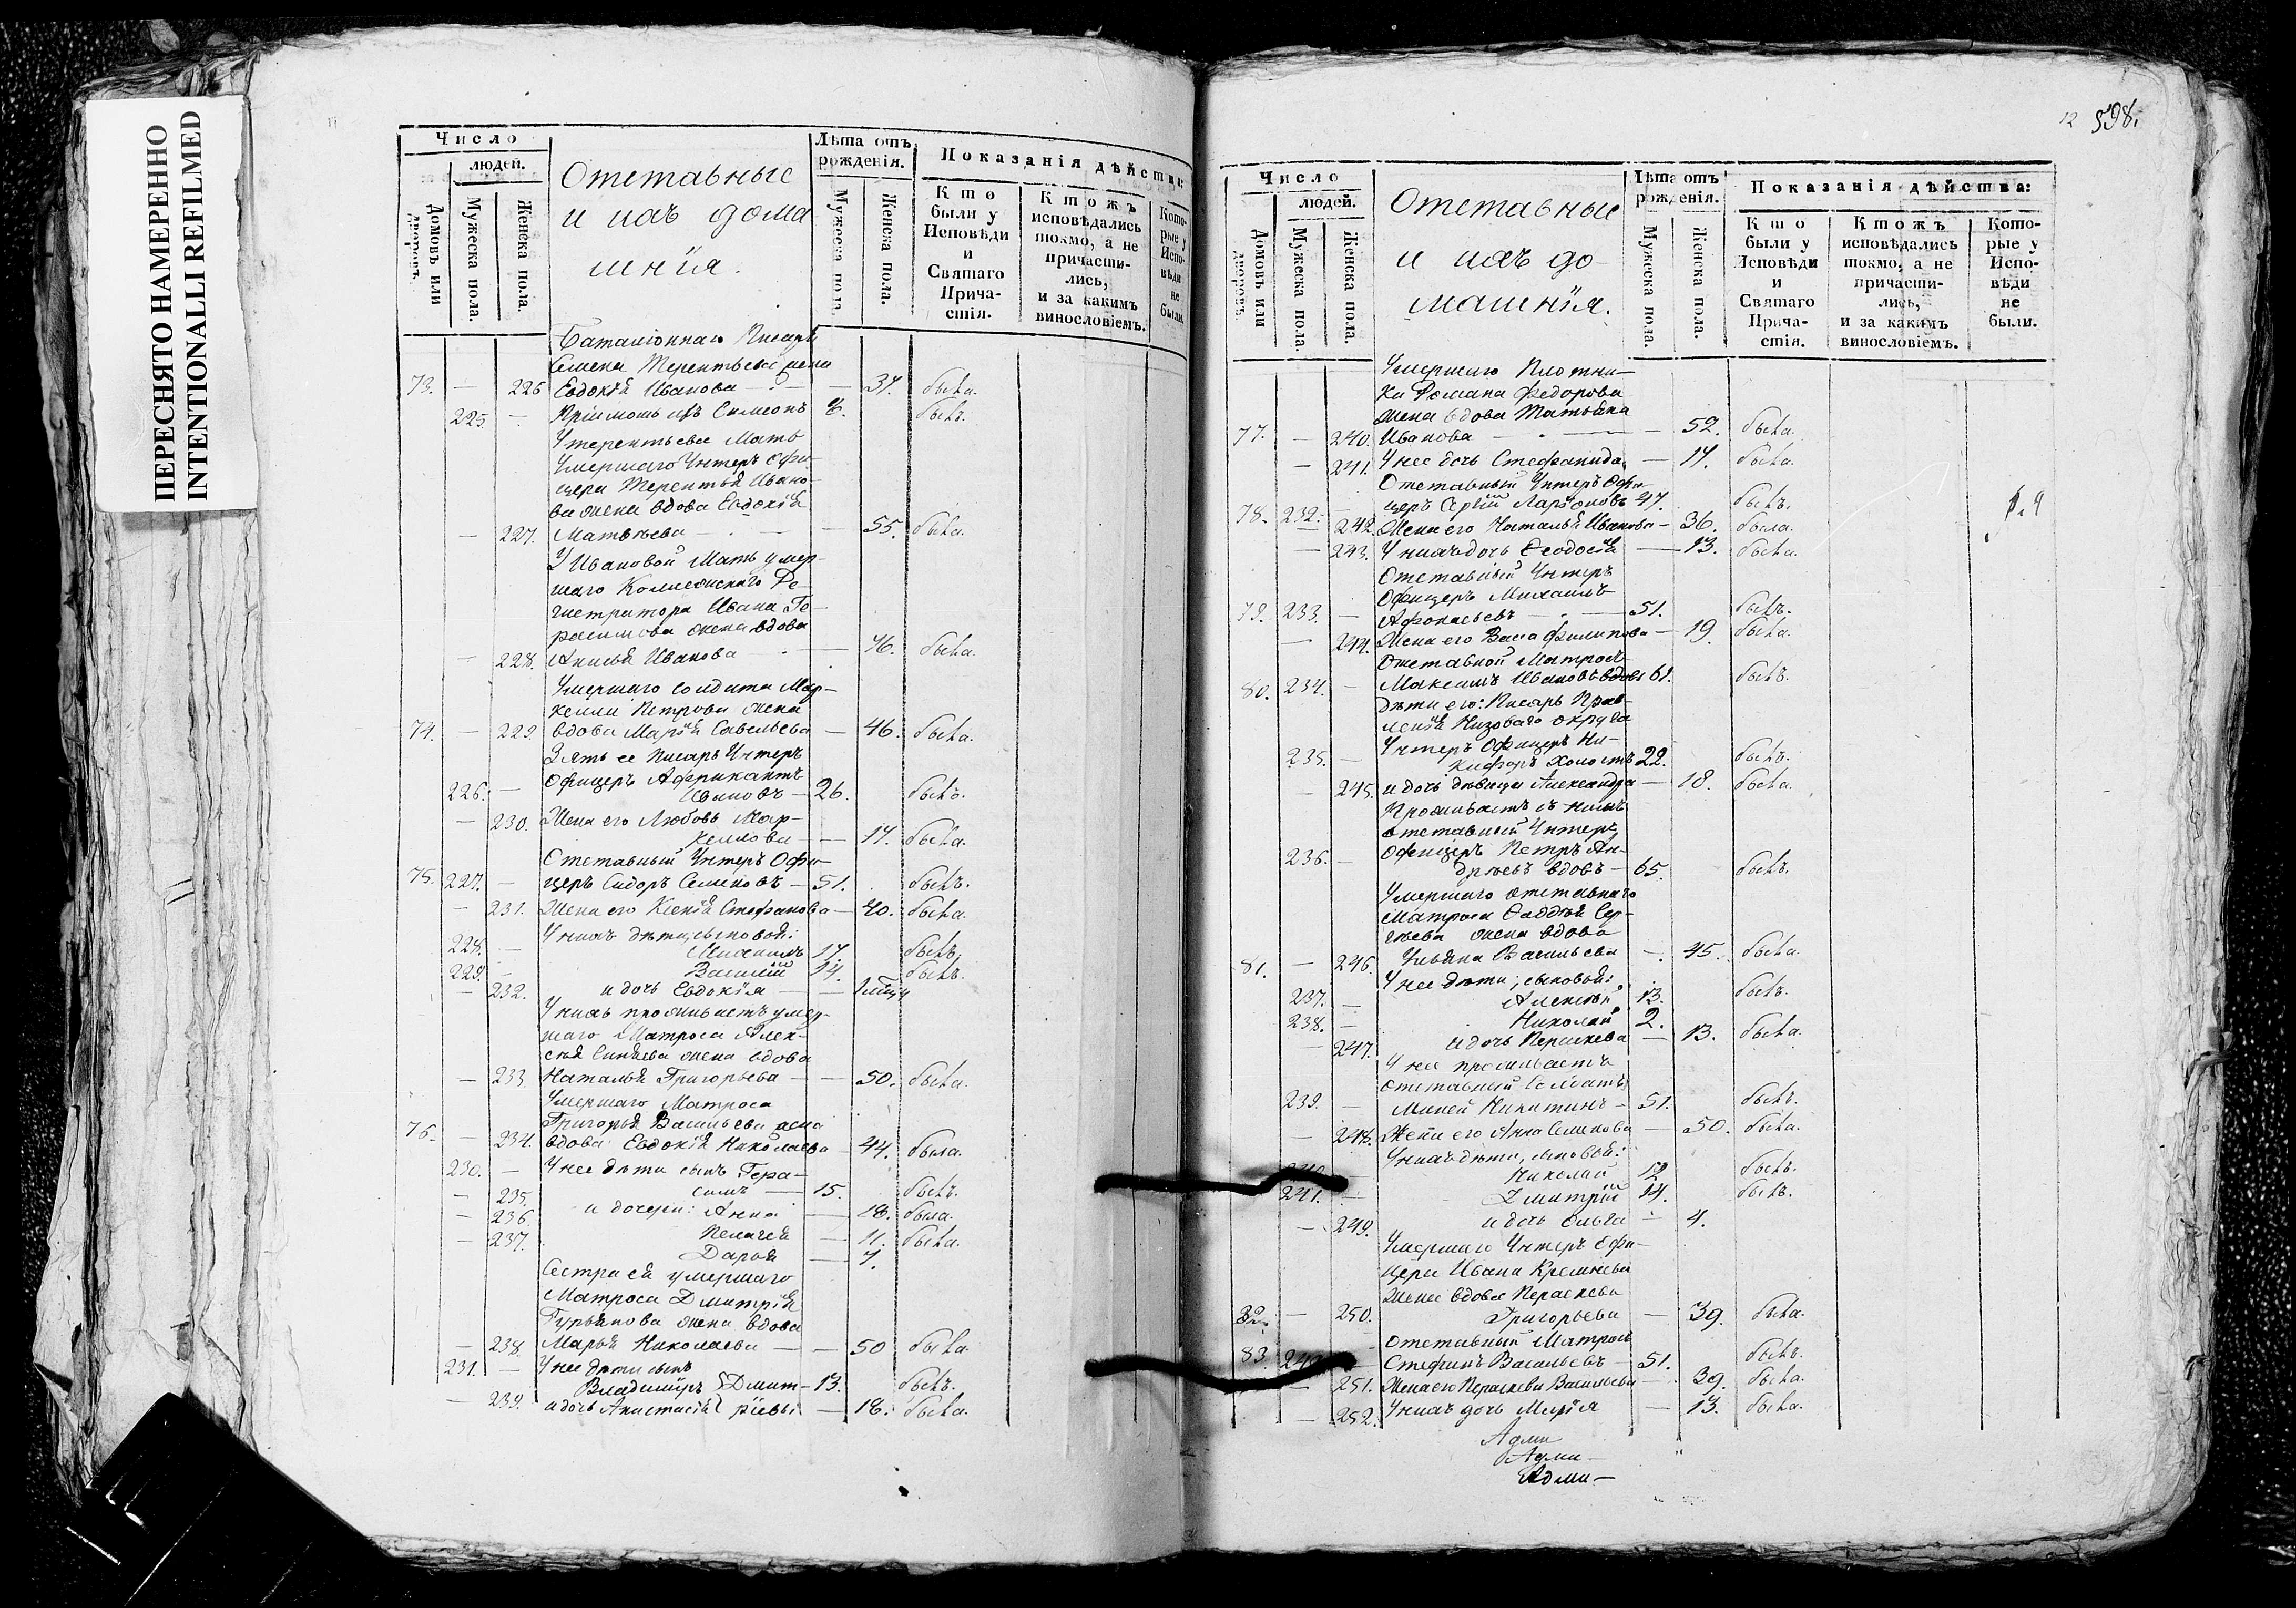 ПЕРЕСНЯТО НАМЕРЕННО
INTENTIONALLI REFILMED
Число
людей.
Домовъ или дворовъ.
Мужеска пола.
Женска пола.
Отставные
и ихъ дома
шнія.
Лѣта отъ рожденія.
Мужеска пола
Женска пола.
Показанія дѣйства:
Кто были у Исповѣди и Святаго Прича-стія.
Ктожъ исповѣдались токмо, а не причасти-лись, и за какимъ винословіемъ.
Кото-рые у Испо-вѣди не были.
Баталіоннаго Писаря
Семена Терентьева жена
73. — 226 Евдокія Иванова — — 37. была.
225. — Пріимышъ ихъ Симеонъ 8. былъ.
У Терентьева Мать
Умершаго Унтеръ Офи-
цера Терентья Ивано-
ва жена вдова Евдокія
— 227. Матвѣева — — 55. была.
У Ивановой Мать умер-
шаго Колле Ре-
гистратора Ивана Ге-
расимова жена вдова
— 228. Анисья Иванова — — 76. была.
Умершаго солдата Мар-
келла Петрова жена
74. — 229. вдова Марія Савельева — 46. была.
Зять ее Писарь Унтеръ
Офицеръ Африкантъ
226. — Ивановъ — 26. былъ.
— 230. Жена его Любовь Мар-
келлова — — 17. была.
Отставный Унтеръ Офи-
75. 227. — церъ Сидоръ Семеновъ — 51. былъ.
— 231. Жена его Ксенія Стефанова — 40. была.
У нихъ дѣти, сыновья:
228. — Михаилъ 17. былъ.
229. — Василій 14. былъ.
— 232. и дочь Евдокія — —
У нихъ проживаетъ умер-
шаго Матроса Алек-
сѣя жена вдова
— 233. Наталья Григорьева — — 50. была.
Умершаго Матроса
Григорья Васильева жена
76. — 234. вдова Евдокія Николаева — 44. была.
230. — У нее дѣти сынъ Гера-
симъ — 15. былъ.
— 235. и дочери: Анна — 18. была.
— 236. Пелагея — 11. была.
— 237. Дарья — 7.
Сестра ея умершаго
Матроса Дмитрія
Гурьянова жена вдова
— 238 Марья Николаева — — 50 была.
231. — У нее дѣти сынъ
Владиміръ Дмит- 13. былъ.
— 239. и дочь Анастасія ріевы — 18. была.
12 598.
Число
людей.
Домовъ или дворовъ.
Мужеска пола.
Женска пола.
Отставные
и ихъ до-
машнія.
Лѣта отъ рожденія.
Мужеска пола.
Женска пола.
Показанія дѣйства:
Кто были у Исповѣди и Святаго Прича-стія.
Ктожъ исповѣдались токмо, а не причасти-лись, и за какимъ винословіемъ.
Кото-рые у Испо-вѣди не были.
Умершаго Плотни-
ка Романа Федорова
жена вдова Татьяна
77. — 240. Иванова — — 52. была.
— 241. У нее дочь Стефанида — 17. была.
Отставный Унтеръ Офи-
78. 232. — церъ Ларіоновъ 47. былъ.
— 242. Жена его Наталья Иванова — 36. была.
— 243. У нихъ дочь Ѳеодосія — 13. была.
Отставный Унтеръ
Офицеръ Михаилъ
79. 233. — Афонасьевъ — 51. былъ.
— 244. Жена его Васса Филипова — 19. была.
Отставной Матросъ
80. 234. — Максимъ Ивановъ вдовъ 61. былъ.
Дѣти его: Писарь Прав-
ленія Низоваго округа
235. — Унтеръ Офицеръ Ни-
кифоръ холостъ 22. былъ.
— 245. и дочь дѣвица Александра — 18. была.
Проживаетъ съ нимъ
отставный Унтеръ
236. — Офицеръ Петръ Ан-
дреевъ вдовъ — 65. былъ.
Умершаго отставнаго
Матроса Ѳаддѣя Сер-
гѣева жена вдова
81. — 246. Ульяна Васильева — 45. была.
У нее дѣти, сыновья:
237. — Алексѣй 13. былъ.
238. — Николай 2.
— 247. и дочь Перасковa — 13. была.
У нее проживаетъ
отставный Солдатъ
239. — Миней Никитинъ — 51. былъ.
— 248. Жена его Анна Семенова — 50. была.
У нихъ дѣти, сыновья:
Николай 12 былъ.
241. — Дмитрій 14. былъ.
— 249. и дочь Ольга — 4.
Умершаго Унтеръ Офи-
цера Ивана
Жена вдова Параскева
82. — 250. Григорьева — 39. была.
Отставный Матросъ
83. Стефанъ Васильевъ — 51. былъ.
— 251. Жена его Параскева Васильева — 39. была.
— 252. У нихъ дочь Марія — 13. была.
Адми
Адми-
Адми-